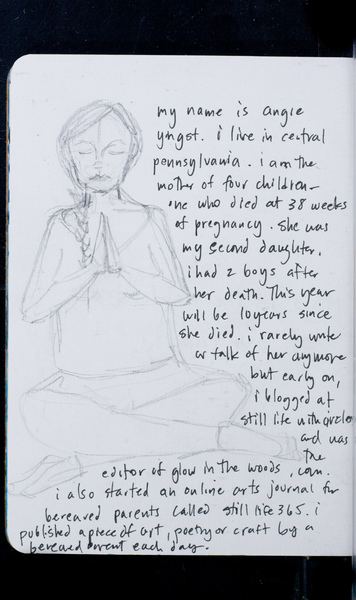 my name is angie
yngst. i live in central
pennsylvania. i am the
mother of four children—
one who died at 38 weeks
of pregnancy. she was
my second daughter.
i had 2 boys after
her death. This year
will be 10 years since
she died. i rarely write
or talk of her anymore
but early on,
i blogged at
still life with circles
and was
the
editor of glow in the woods.com.
i also started an online arts journal for
bereaved parents called still life 365. i
published a piece of art, poetry or craft by a
bereaved parent each day.